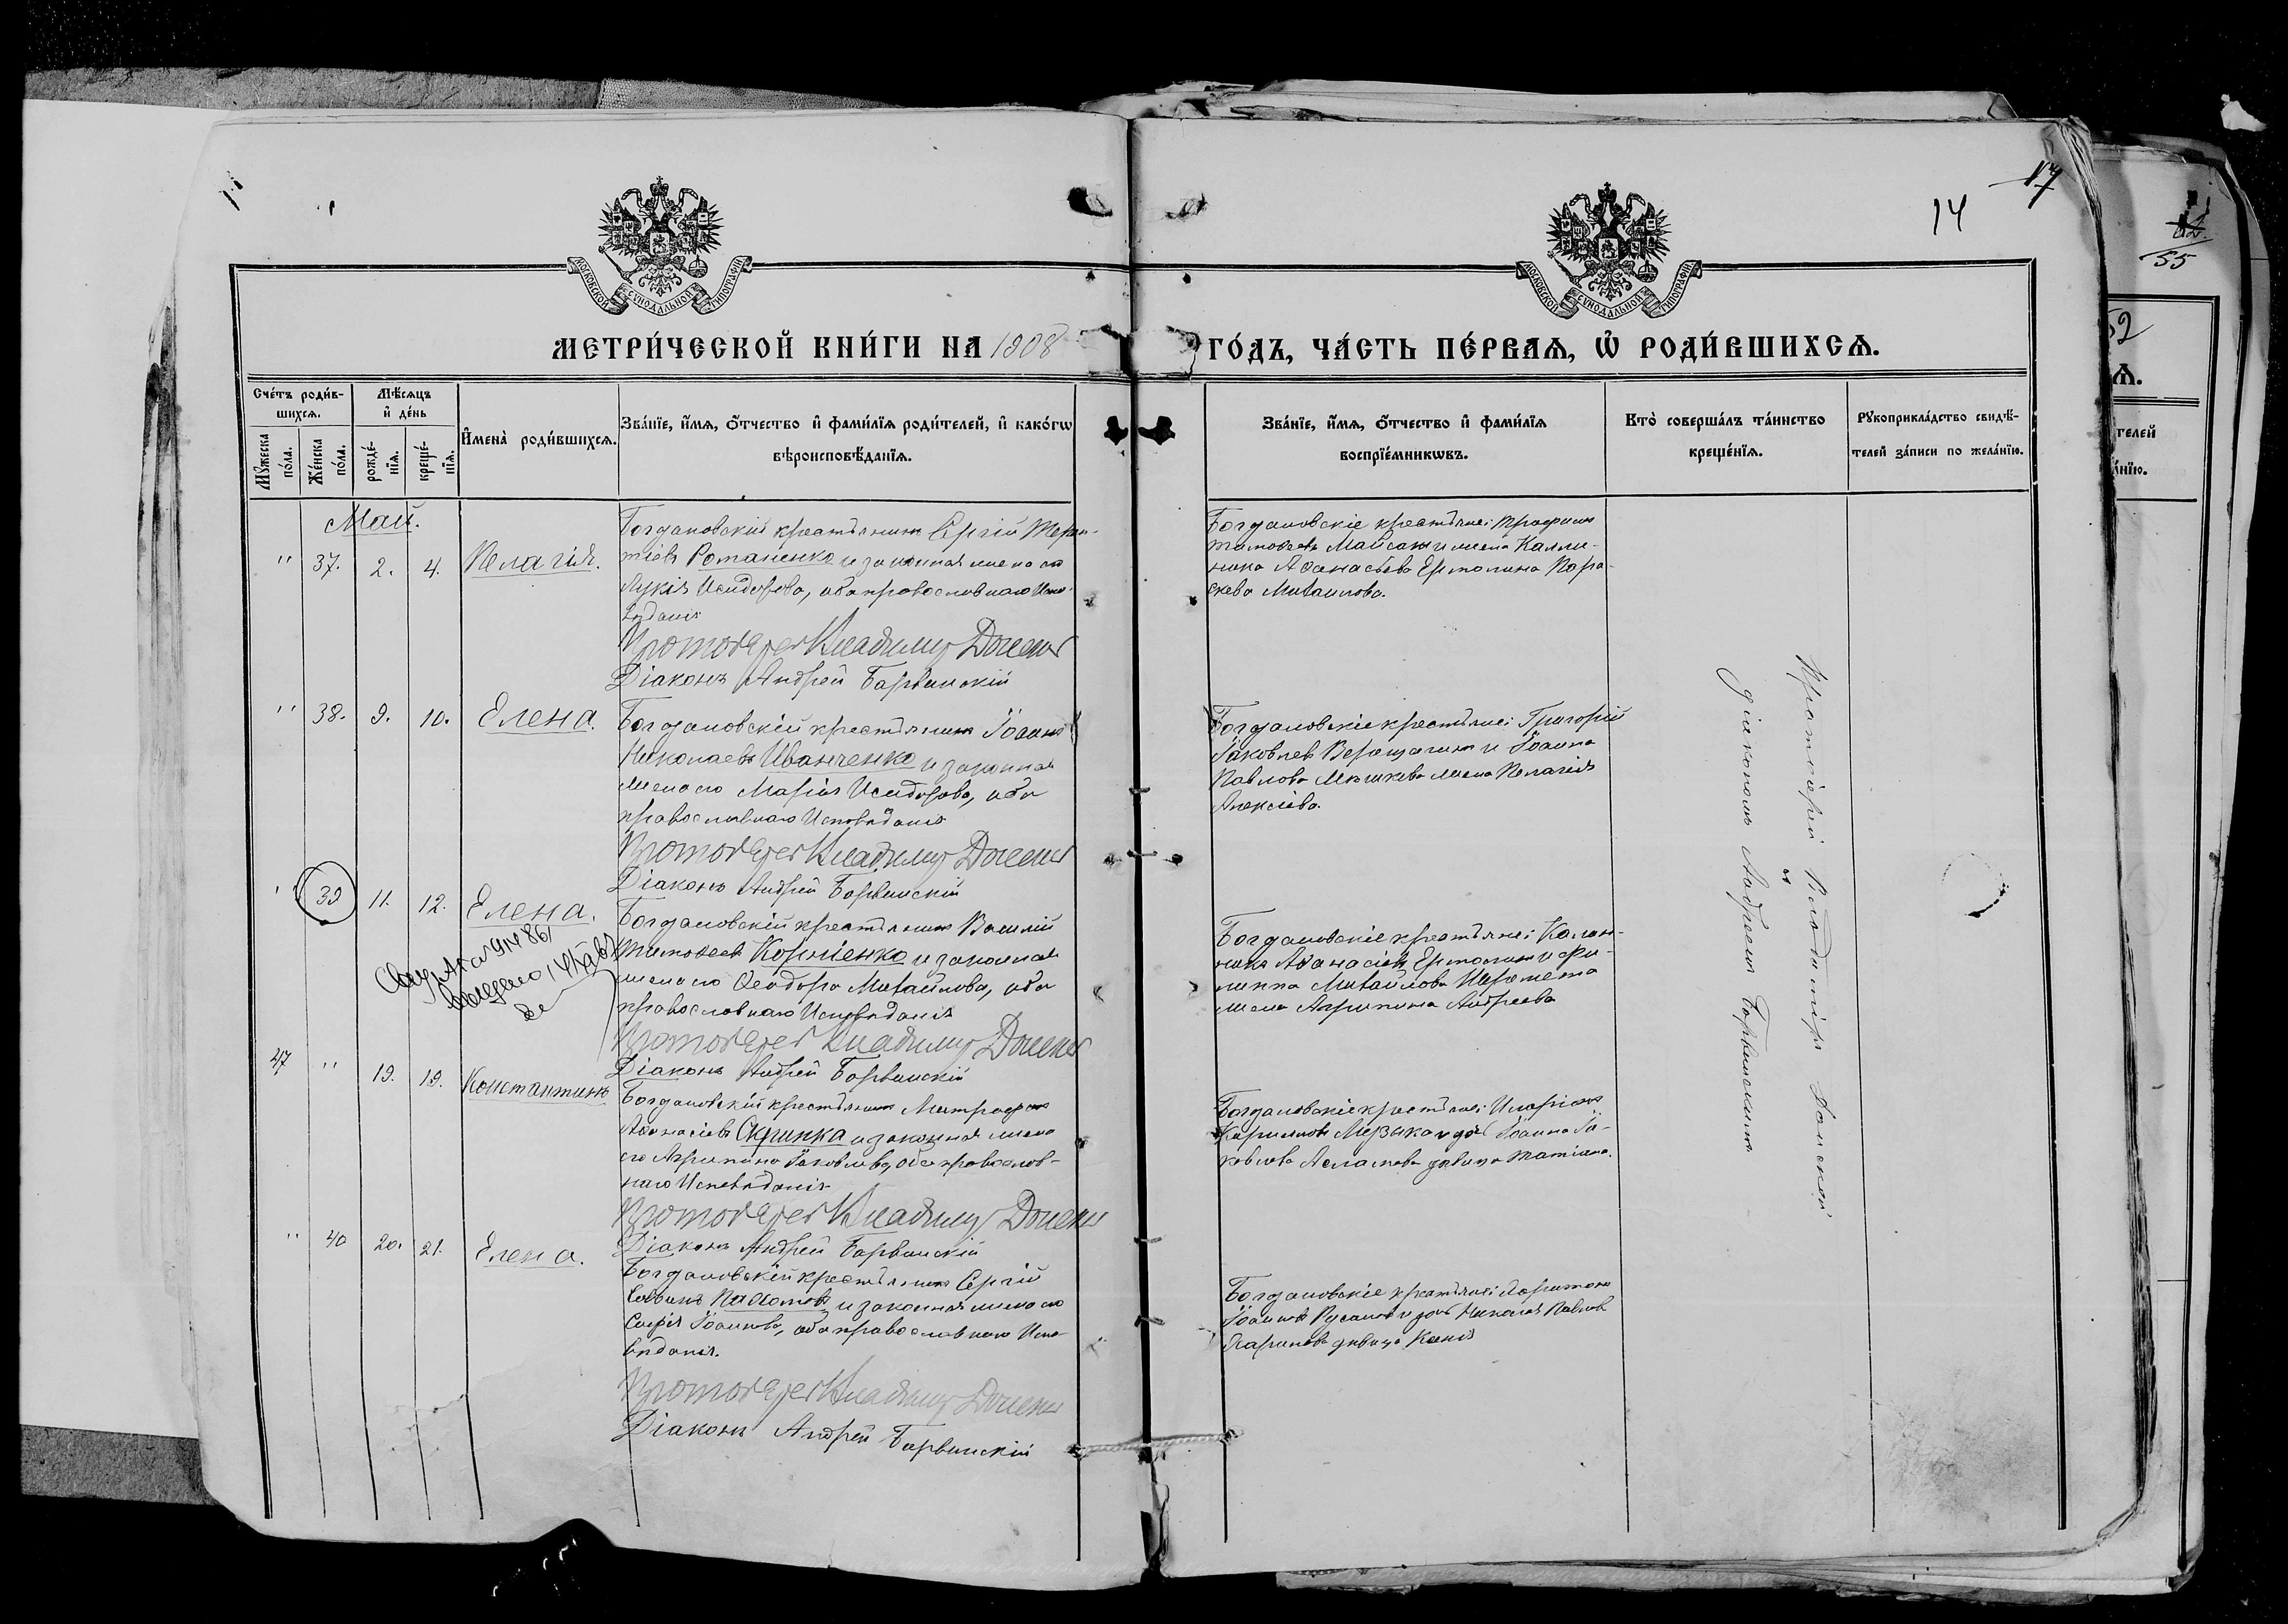 14
17
55
52
МОСКОВСКОЙ СѴНОДАЛЬНОЙ ТИПОГРАФІИ
МОСКОВСКОЙ СѴНОДАЛЬНОЙ ТИПОГРАФІИ
МЕТРИ́ЧЕСКОЙ КНИ́ГИ НА 1908
ГО́ДЪ, ЧА́СТЬ ПЕ́РВАѦ, Ѡ҆ РОДИ́ВШИХСѦ.
Сче́тъ роди́в-
шихсѧ.
Мꙋ́жеска по́ла.
Же́нска по́ла.
Мѣ́сѧцъ
и҆ де́нь
рожде́-
нїѧ.
креще́-
нїѧ.
И҆мена̀ роди́вшихсѧ.
Зва́нїе, и҆́мѧ, ѻ҆́тчество и҆ фами́лїѧ роди́телей, и҆ како́гѡ
вѣроисповѣ́данїѧ.
Зва́нїе, и҆́мѧ, ѻ҆́тчество и҆ фами́лїѧ
воспрїе́мникѡвъ.
Кто̀ соверша́лъ та́инство
креще́нїѧ.
Рꙋкоприкла́дство свидѣ́-
телей за́писи по жела́нїю.
Май.
" 37. 2. 4. Пелагія.
Богдановскій крестьянинъ Сергій Терен-
тіевъ Романенко и законная жена его
Лукія Исидорова, оба православнаго Испо-
вѣданія
Протоіерей Владимир Доценко
Діаконъ Андрей Барвинскій
Богдановскіе крестьяне: Трофимъ
Тимофеевъ и жена Калли-
ника Афанасьева Ермолина Пара-
скева Михаилова.
" 38. 9. 10. Елена.
Богдановскій крестьянинъ Іоаннъ
Николаевъ Иванченко и законная
жена его Марія Исидорова, оба
православнаго Исповѣданія
Протоіерей Владимир Доценко
Діаконъ Андрей Барвинскій
Богдановскіе крестьяне: Григорій
Іаковлевъ Верещагинъ и Іоанна
Павлова жена Пелагія
Алексіева.
" 39 11. 12. Елена.
Богдановскій крестьянинъ Василій
Тимофеевъ Корніенко и законная
жена его Феодора Михайлова, оба
православнаго Исповѣданія
Протоіерей Владимир Доценко
Діаконъ Андрей Барвинскій
Богдановскіе крестьяне: Калин-
никъ Афанасіевъ Ермолинъ и Фи-
липпа Михайлова
жена Агрипина Андреева
47 " 19. 19. Константинъ
Богдановскій крестьянинъ Митрофанъ
Афанасіевъ Скрипка и законная жена
его Агрипина Іаковлева, оба православ-
наго Исповѣданія
Протоіерей Владимир Доценко
Діаконъ Андрей Барвинскій
Богдановскіе крестьяне: Иларіонъ
Музыка и дочь Іоанна Іа-
ковлева дѣвица Татіана.
" 40 20. 21. Елена.
Богдановскій крестьянинъ Сергій
Саввинъ Пахомовъ и законная жена его
Софія Іоаннова, оба православнаго Испо-
вѣданія.
Протоіерей Владимир Доценко
Діаконъ Андрей Барвинскій
Богдановскіе крестьяне: Харитонъ
Іоанновъ Русановъ и дочь Николая Павлова
дѣвица Ксенія
Протоіерей Владиміръ
съ
діакономъ Андреемъ Барвинскимъ